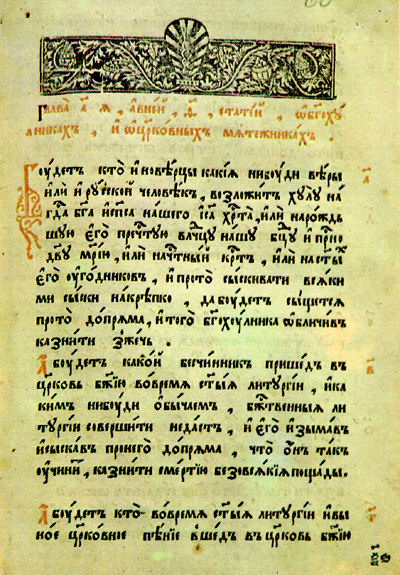 Глава а҃ я, а в ней, ѳ҃, статей, ѡ бг҃оху
лникахъ, и ѡ цр҃ковныхъ мятежникахъ.
Боудетъ кто иновѣрцы какия нибоуди вѣры
или и роуской человѣкъ, возложитъ хулоу на
гд҃а бг҃а и сп҃са нашего іс҃а хр҃та, или на рождь
шую его пречт҃ую влⷣчцу нашу бц҃у и прⷭно
дв҃у мр҃ію, или на чтⷭный крⷭтъ, или на ст҃ыхъ
его оугодниковъ, и про то сыскивати всяки
ми сыски накрѣпко, да боудетъ сыщется
про то допряма, и того бг҃охоулника ѡбличивъ
казнити зжечь.
а҃
А боудетъ какой безчинникъ пришедъ въ
цр҃ковь бж҃ію во время ст҃ыя литургіи, и ка
кимъ нибоуди ѡбычаемъ, бжⷭтвенныя ли
тургіи совершити не дастъ, и его изымавъ
и сыскавъ про него допряма, что онъ такъ
оучинитъ, казнити смертію безо всякія пощады.
в҃
А боудетъ кто во время ст҃ыя литургіи и въ и
ное цр҃ковное пѣніе вшедъ въ цр҃ковь бж҃ію